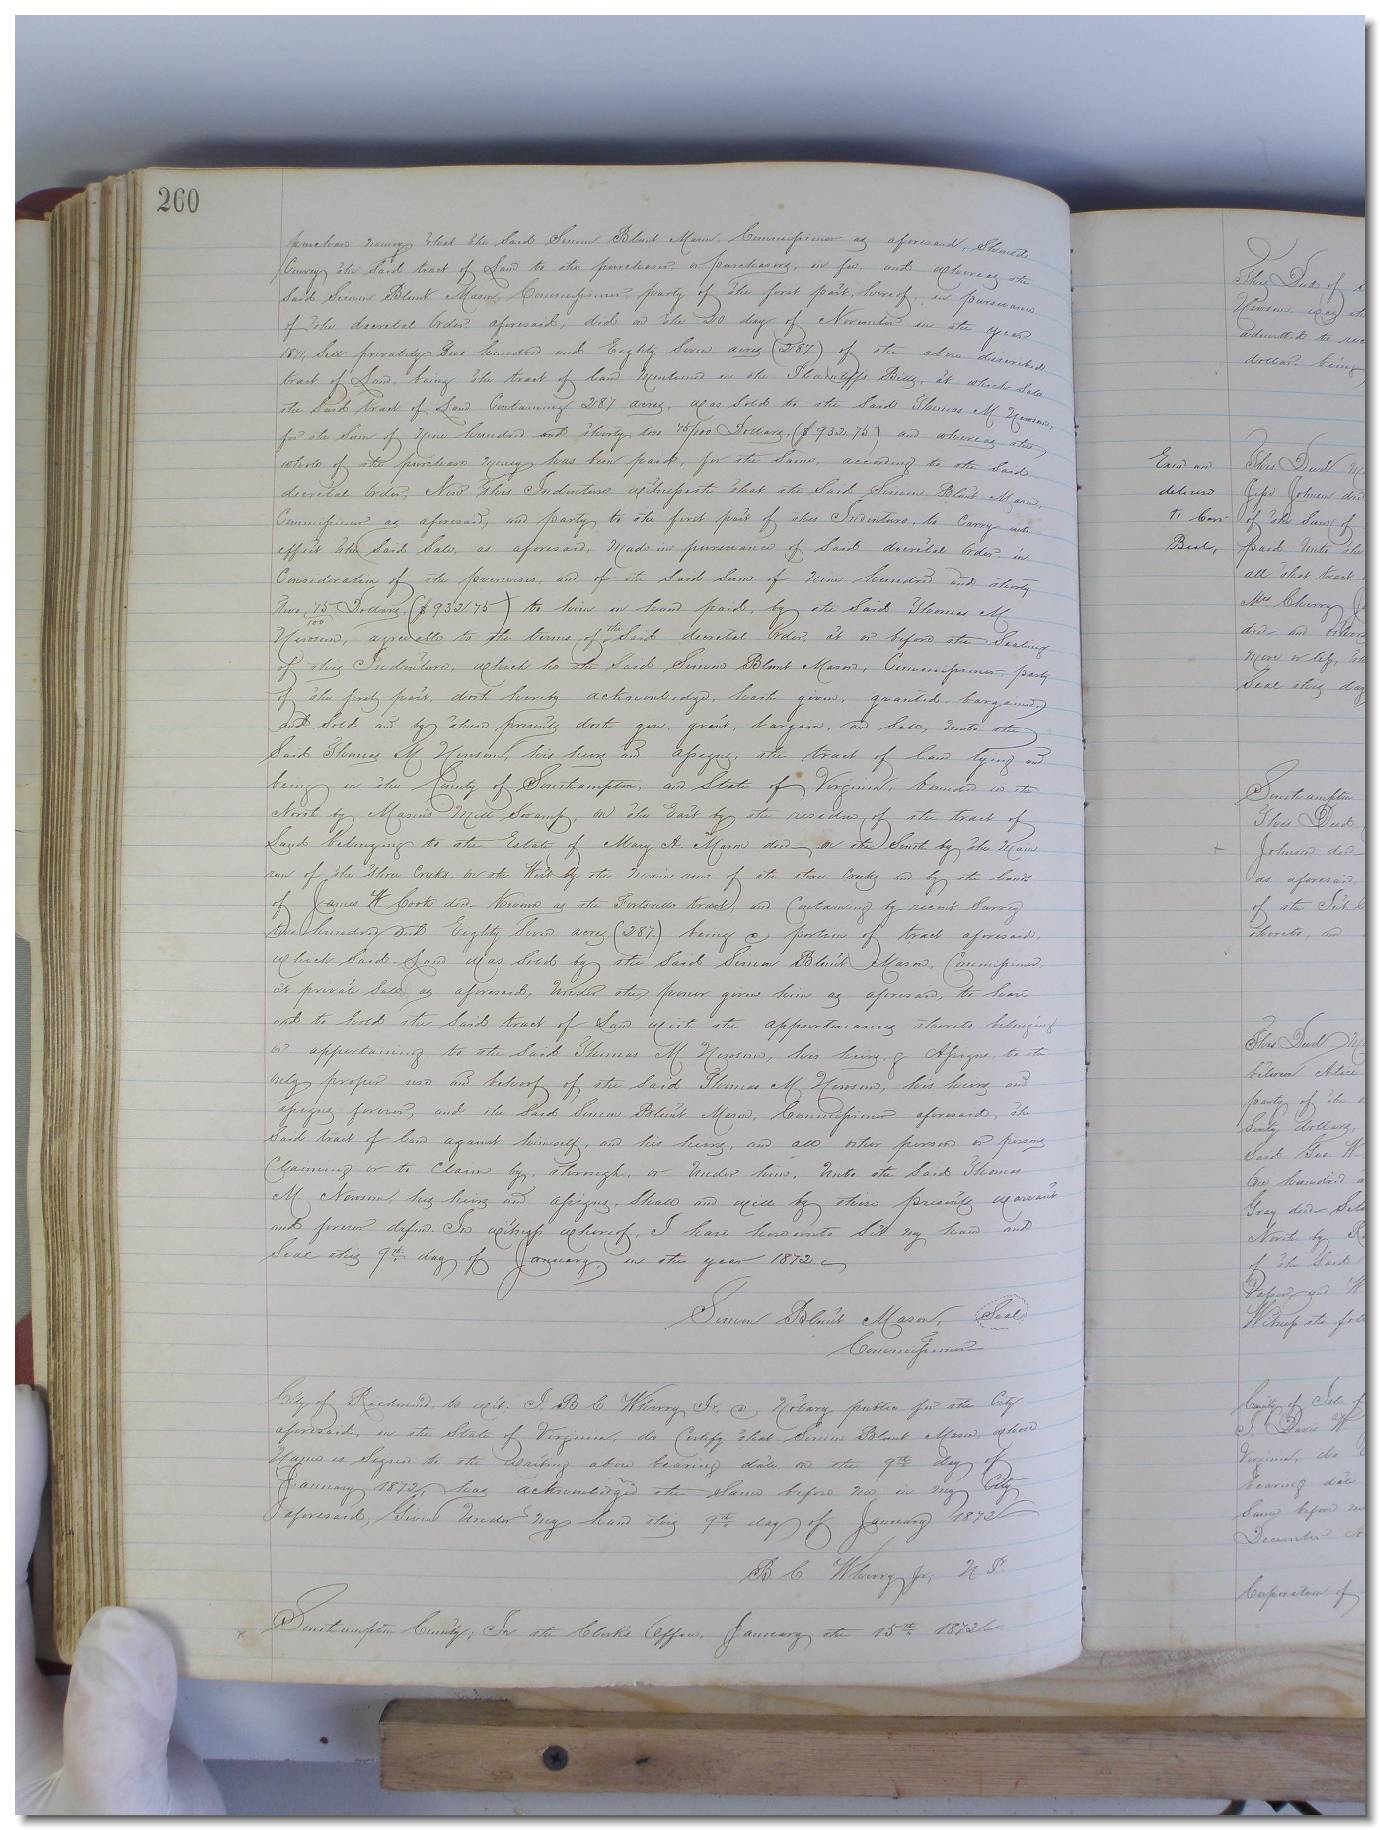 260
purchase money, that the Said Simon Blunt Mason, Commissioner as aforesaid, Should
Convey the Said tract of Land to the purchaser or purchasers, in fee, and whereas the
Said Simon Blunt Mason, Commissioner, party of the first part, hereof, in pursuance
of the decretal Order aforesaid, did on the 20 day of November in the year
1871, Sell privately Two hundred and Eighty Seven acres (287) of the above described
tract of Land, being the tract of land Mentioned in the Plaintiff's Bill, at which Sale
the Said tract of Land Containing 287 acres, was Sold to the Said Thomas M Newsom,
for the Sum of Nine hundred and thirty two 75/100 Dollars, ($932.75) and whereas the
whole of the purchase money has been paid, for the Same, according to the Said
decretal Order, Now This Indenture witnesseth that the Said Simon Blunt Mason,
Commissioner as aforesaid, and party to the first part of this Indenture, to Carry into
effect the Said Sale, as aforesaid, Made in pursuance of Said decretal Order in
Consideration of the premises, and of the Said Sum of Nine hundred and thirty
two 75/100 Dollars ($932.75) to him in hand paid, by the Said Thomas M
Newsom, agreeable to the terms of the Said decretal Order, at or before the Sealing
of this Indenture, which he the Said Simon Blunt Mason, Commissioner party
of the first part, doth hereby acknowledge, hath given, granted, bargained
and Sold and by these presents doth give, grant, bargain, and Sell, unto the
Said Thomas M Newsom, his heirs and assigns, the tract of land lying and
being in the County of Southampton, and State of Virginia, bounded on the
North by Mason's Mill Swamp, on the East by the residue of the tract of
Land belonging to the Estate of Mary A Mason decd, on the South by the Main
run of the Three Creeks, on the West by the Main run of the three Creeks and by the lands
of James W Cook decd Known as the Fortsville tract, and Containing by recent Survey
two hundred and Eighty Seven acres (287) being a portion of tract aforesaid,
which Said Land was Sold by the Said Simon Blunt Mason, Commissioner,
at private Sale as aforesaid, Under the power given him as aforesaid, to have
and to hold the Said tract of Land with the appurtenances thereto belonging
or appertaining to the Said Thomas M Newsom, his heirs, & Assigns, to the
only proper use and behoof of the Said Thomas M Newsom, his heirs and
assigns forever, and the Said Simon Blunt Mason, Commissioner aforesaid, the
Said tract of land against himself, and his heirs, and all other person or persons
Claiming or to Claim by, through, or Under him, Unto the Said Thomas
M. Newsom his heirs and assigns, Shall and will by these presents warrant
and forever defend. In witness whereof, I have hereunto Set my hand and
Seal this 9th day of January, in the year 1872.
Simon Blunt Mason, Seal
Commissioner
City of Richmond, to wit: I. B C Wherry Jr. a Notary public for the City
aforesaid, in the State of Virginia, do Certify that Simon Blunt Mason, whose
Name is Signed to the writing above bearing date on the 9th day of
January 1872, has acknowledged the Same before me in my City
aforesaid, Given Under My hand this 9th day of January 1872
B C Wherry Jr, N P.
x Southampton County, In the Clerk's Office, January the 15th 1872
This Deed of
Newsom was
admitted to rec
dollars being
Exd and
delivered
to
This Deed
Jesse Johnson
of the Sum of
paid Unto the
all that tract
Mrs Cherry
decd and
More or less,
Seal this day
Southampton
This Deed
+ Johnson decd
as aforesaid,
of the
thereto, and
This Deed
between Alice
party of the
Sixty dollars,
Said Geo W
One hundred a
Gray decd
North by
of the Said
and W
Witness the foll
County of Isle of
I Davis W
Virginia, do
bearing date
Same before me
December
Corporation of